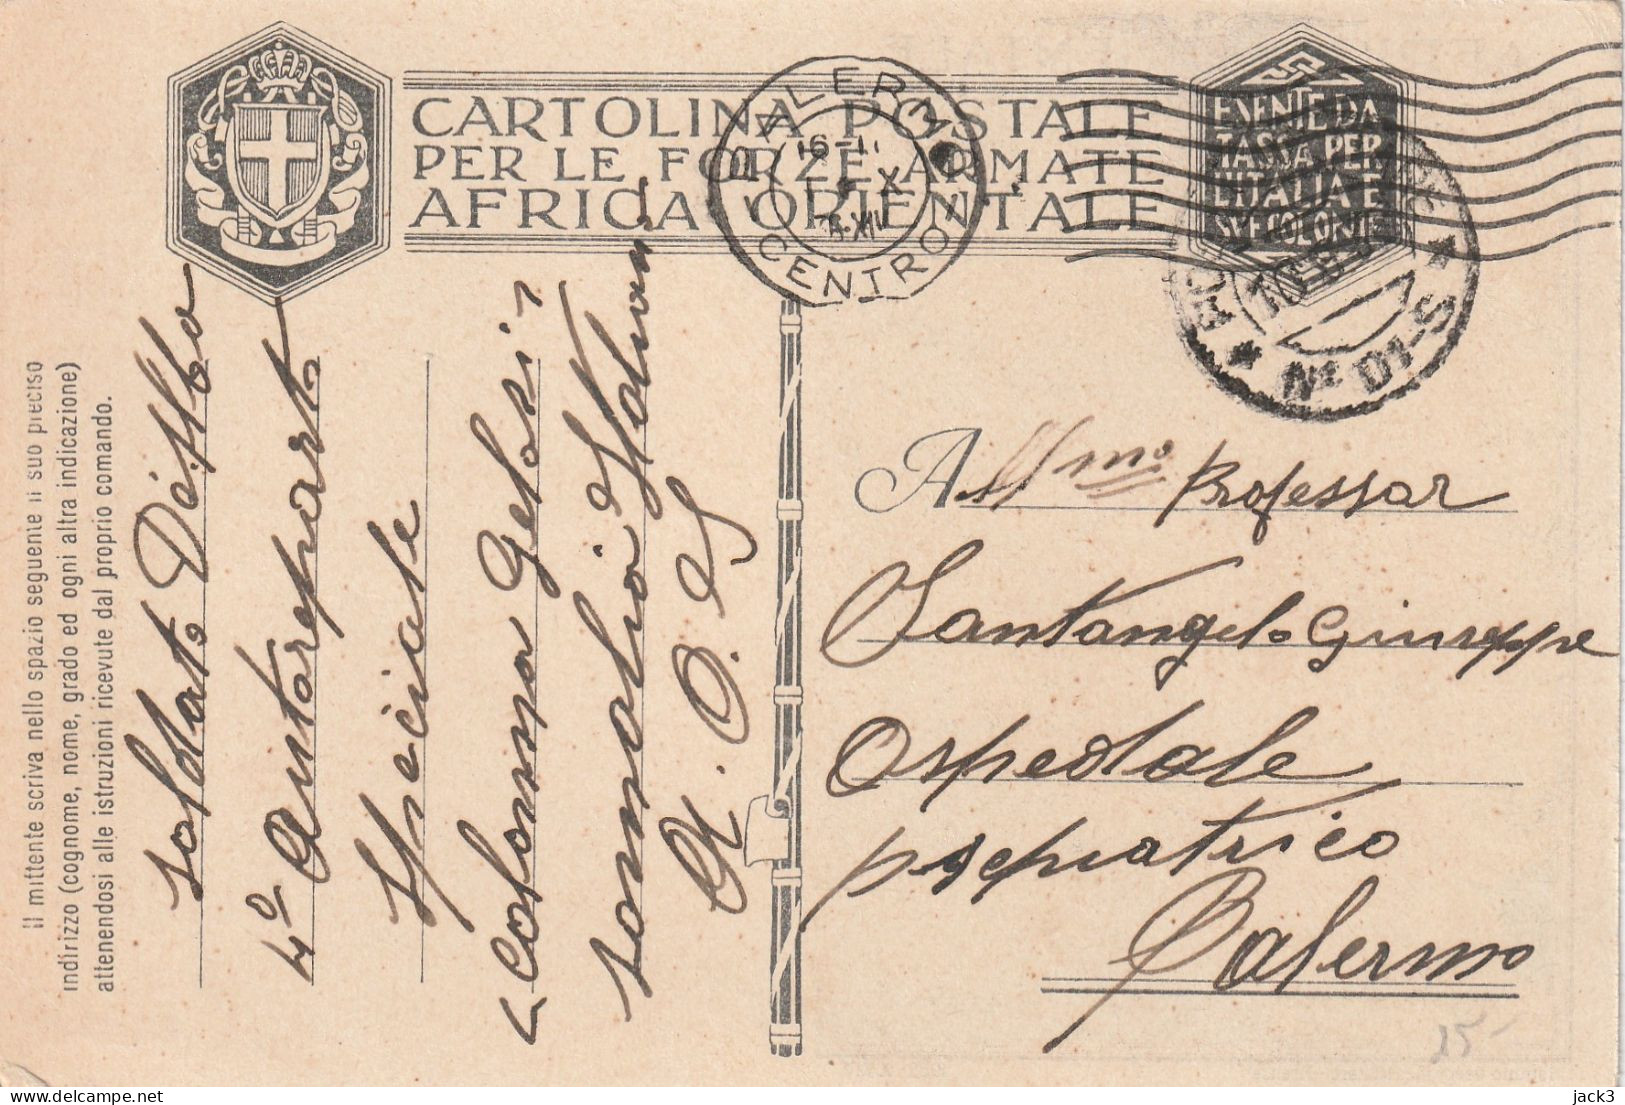 CARTOLINA POSTALE
PER LE FORZE ARMATE
AFRICA ORIENTALE
PALERMO
CENTRO
ESENTE DA
TASSA PER
L'ITALIA E
SVE COLONIE
Nº D1-S
Il mittente scriva nello spazio seguente il suo preciso
indirizzo (cognome, nome, grado ed ogni altra indicazione)
attenendosi alle istruzioni ricevute dal proprio comando.
soldato
4º Autoreparto
speciale
"colonna Gelosi"
somalia Italiana
A. O. I.
A Ill.mo Professor
Santangelo Giuseppe
Ospedale
psichiatrico
Palermo
25-
jack3